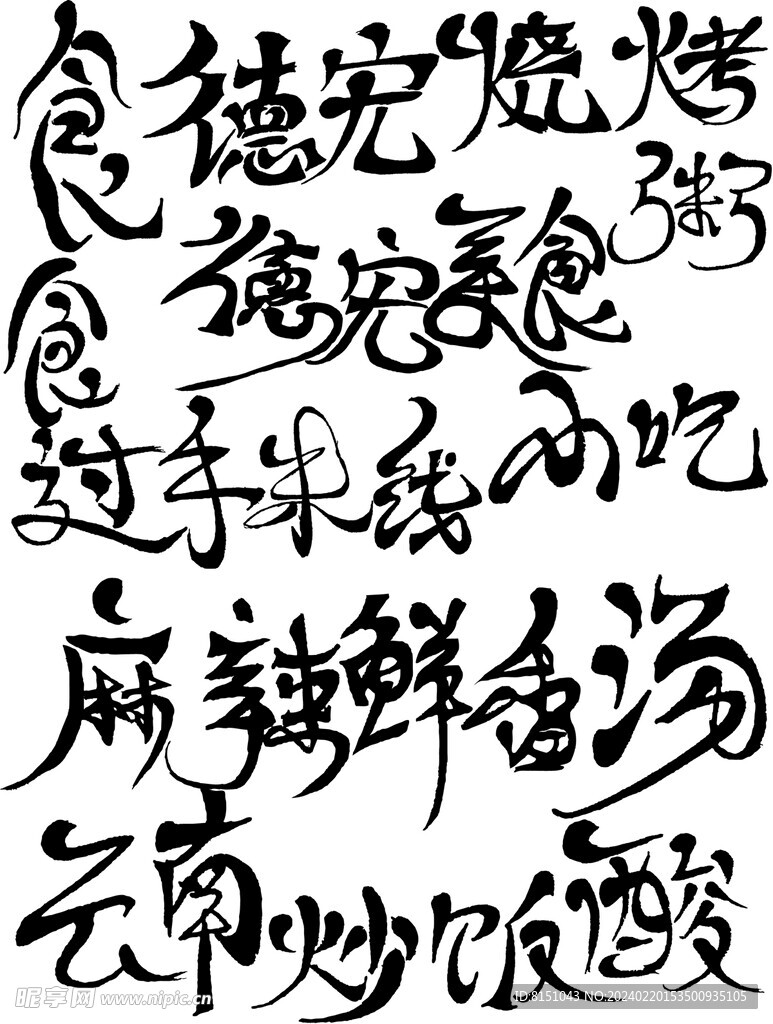 食德宏烧烤
粥
德宏美食
食
过手米线小吃
麻辣鲜香汤
云南炒饭酸
昵享网 www.nipic.cn
ID:8151043 NO:20240220153500935105